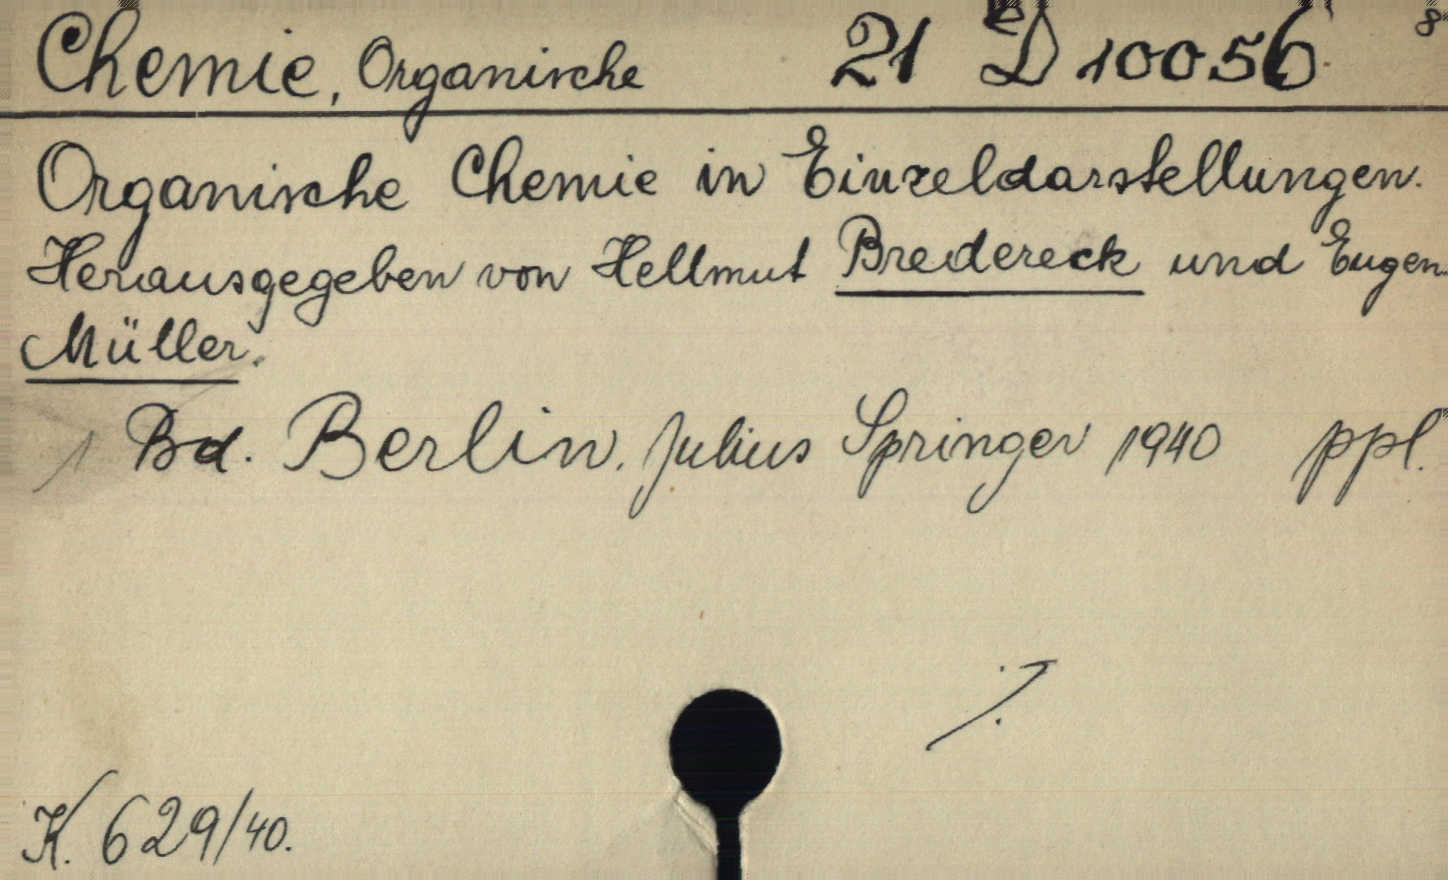 Chemie, Organische 21 D 10056 8
Organische Chemie in Einzeldarstellungen.
Herausgegeben von Hellmut Bredereck und Eugen
Müller.
1 Bd. Berlin. Julius Springer 1940 ppl.
K. 629/40.